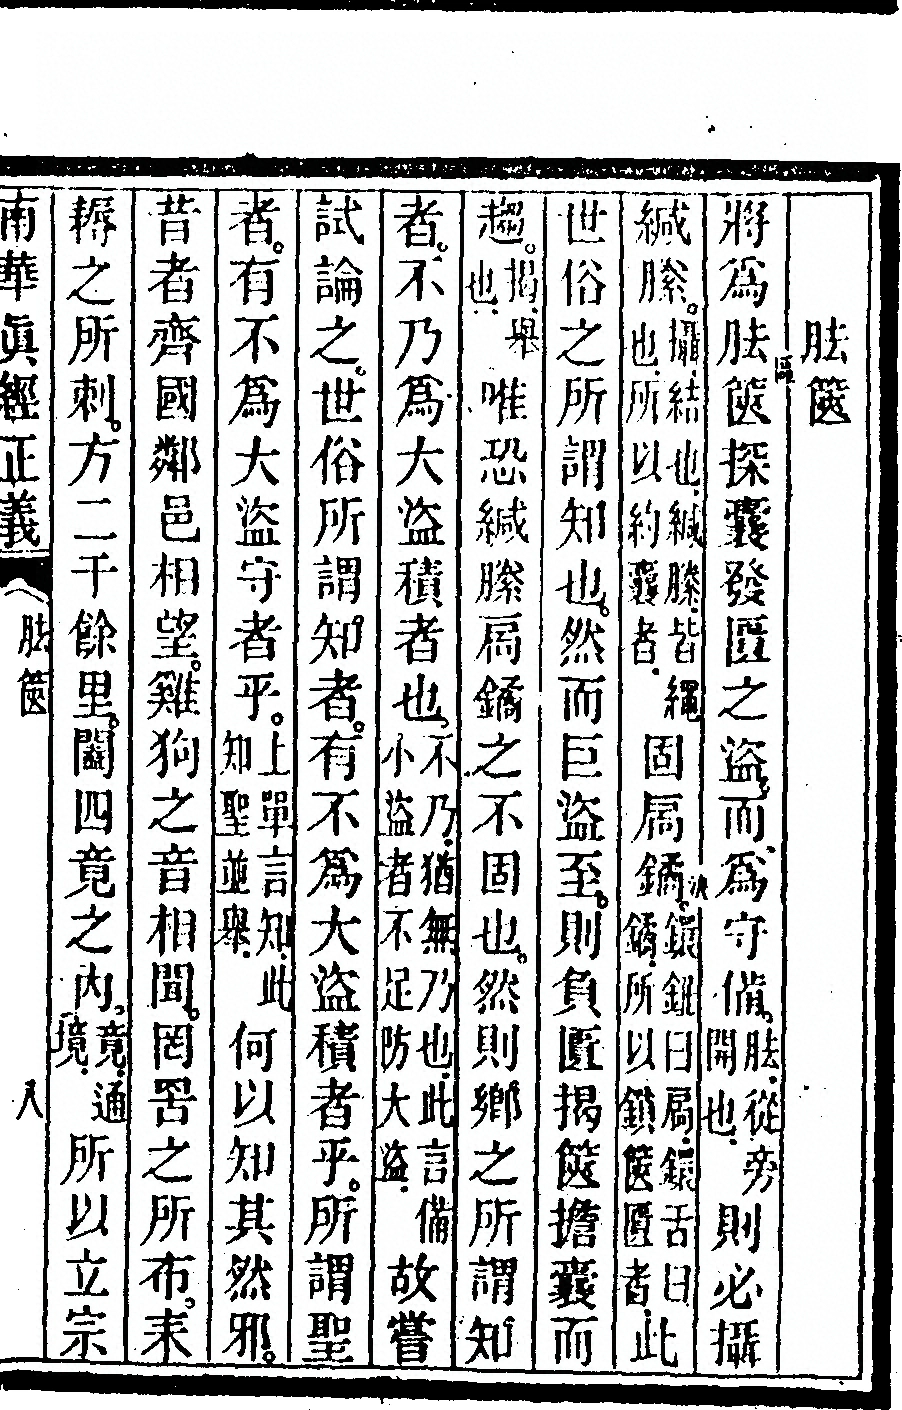 胠篋
將爲胠篋探囊發匱之盜、而爲守備。胠、從旁開也、則必攝
緘縢。攝、結也、緘縢、皆繩也、所以約囊者、固扃鐍、決鐶鈕曰扃、鐶舌曰鐍、所以鎖篋匱者、此
世俗之所謂知也。然而巨盜至。則負匱揭篋擔囊而
趨。揭、舉也、唯恐緘縢扃鐍之不固也。然則鄉之所謂知
者。不乃爲大盜積者也、不乃、猶無乃也、此言備小盜者不足防大盜、故嘗
試論之。世俗所謂知者。有不爲大盜積者乎。所謂聖
者。有不爲大盜守者乎。上單言知、此知聖並舉、何以知其然邪。
昔者齊國鄰邑相望。雞狗之音相聞。罔罟之所布。耒
耨之所刺。方二千餘里。闔四竟之內。竟、通境、所以立宗
南華眞經正義 胠篋